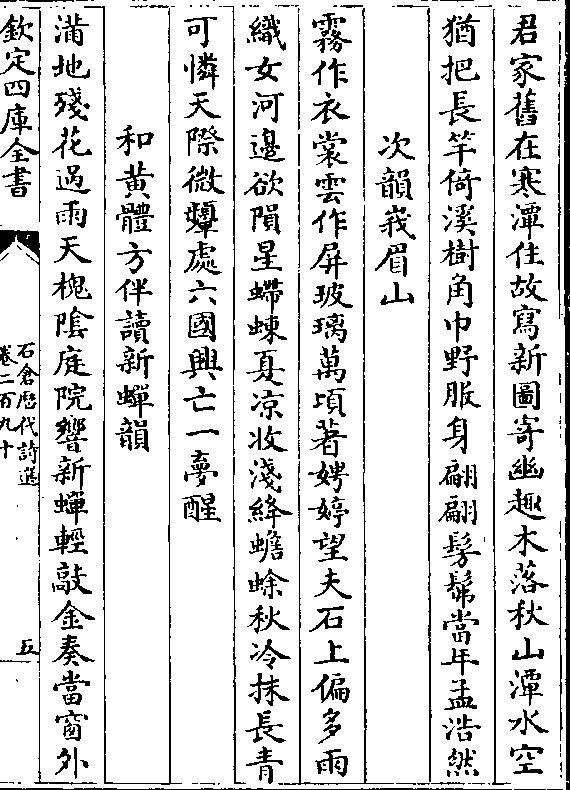 君家舊在寒潭住故寫新圖寄幽趣木落秋山潭水空
猶把長竿倚溪樹角巾野服身翩翩髣髴當年孟浩然
次韻峩眉山
霧作衣裳雲作屏玻璃萬頃著娉婷望夫石上偏多雨
織女河邊欲隕星螮蝀夏凉妝淺絳蟾蜍秋冷抹長青
可憐天際微顰處六國興亡一夢醒
和黄體方伴讀新蟬韻
滿地殘花過雨天槐陰庭院響新蟬輕敲金奏當窗外
欽定四庫全書
石倉歷代詩選
卷二百九十
五